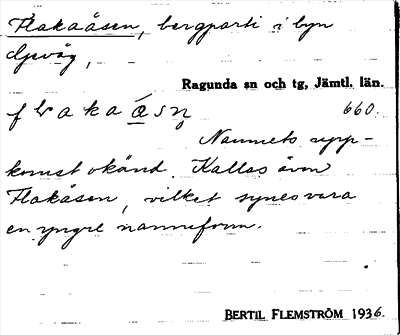 Flakaåsen, bergparti i byn
Djeväg,
Ragunda sn och tg, Jämtl. län.
flakaåsn 660.
Namnets upp-
komst okänd. Kallas även
Flakåsen, vilket synes vara
en yngre namnform.
BERTIL FLEMSTRÖM 1936.